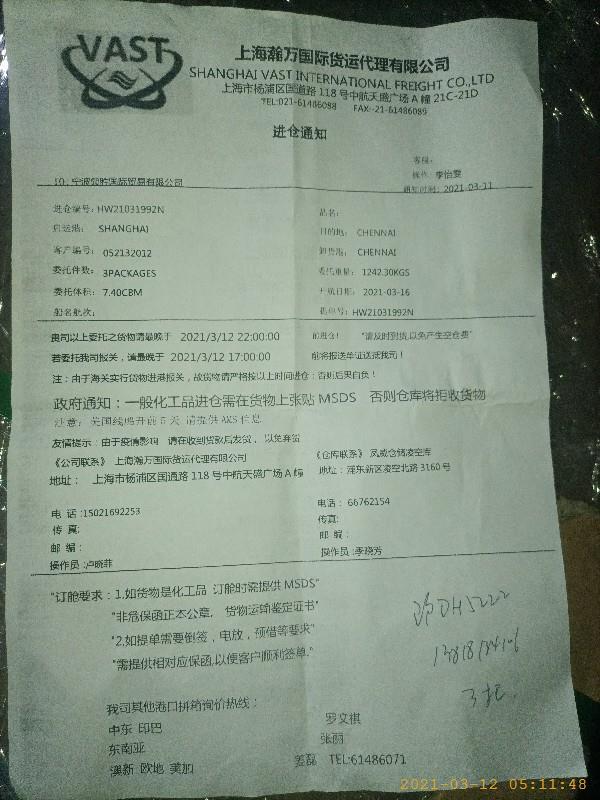 VAST
上海瀚万国际货运代理有限公司
SHANGHAI VAST INTERNATIONAL FREIGHT CO.,LTD
上海市杨浦区国通路 118 号中航天盛广场 A 幢 21C-21D
TEL:021-61486088 FAX:-21-61486089
进仓通知
客服:
操作: 李怡雯
通知时间: 2021-03-11
TO: 宁波 国际贸易有限公司
进仓编号: HW21031992N 品名:
启运港: SHANGHAI 目的地: CHENNAI
客户编号: 052132012 卸货港: CHENNAI
委托件数: 3PACKAGES 委托重量: 1242.30KGS
委托体积: 7.40CBM 开航日期: 2021-03-16
船名航次: 提单号: HW21031992N
贵司以上委托之货物请最晚于 2021/3/12 22:00:00 前进仓! "请及时到货,以免产生空仓费"
若委托我司报关，请最晚于 2021/3/12 17:00:00 前将报送单证送抵我司!
注：由于海关实行货物进港报关，故货物请严格按以上时间进仓；否则后果自负!
政府通知：一般化工品进仓需在货物上张贴 MSDS 否则仓库将拒收货物
注意：美国线离开前 5 天 请提供 AMS 信息
友情提示：由于疫情影响 请在收到货款后发货，以免弃货
《公司联系》 上海瀚万国际货运代理有限公司 《仓库联系》 凤威仓储凌空库
地址： 上海市杨浦区国通路 118 号中航天盛广场 A 幢 地址：浦东新区凌空北路 3160 号
电 话 :15021692253 电话： 66762154
传 真: 传真:
邮 编： 邮 编：
操作员 :卢晓菲 操作员 :李晓芳
"订舱要求：1.如货物是化工品 订舱时需提供 MSDS"
"非危保函正本公章， 货物运输鉴定证书"
"2.如提单需要倒签，电放，预借等要求"
"需提供相对应保函,以便客户顺利签单."
沪DH5222
3托
我司其他港口拼箱询价热线：
中东 印巴 罗文祺
东南亚 张丽
澳新 欧地 美加 姜磊 TEL:61486071
2021-03-12 05:11:48